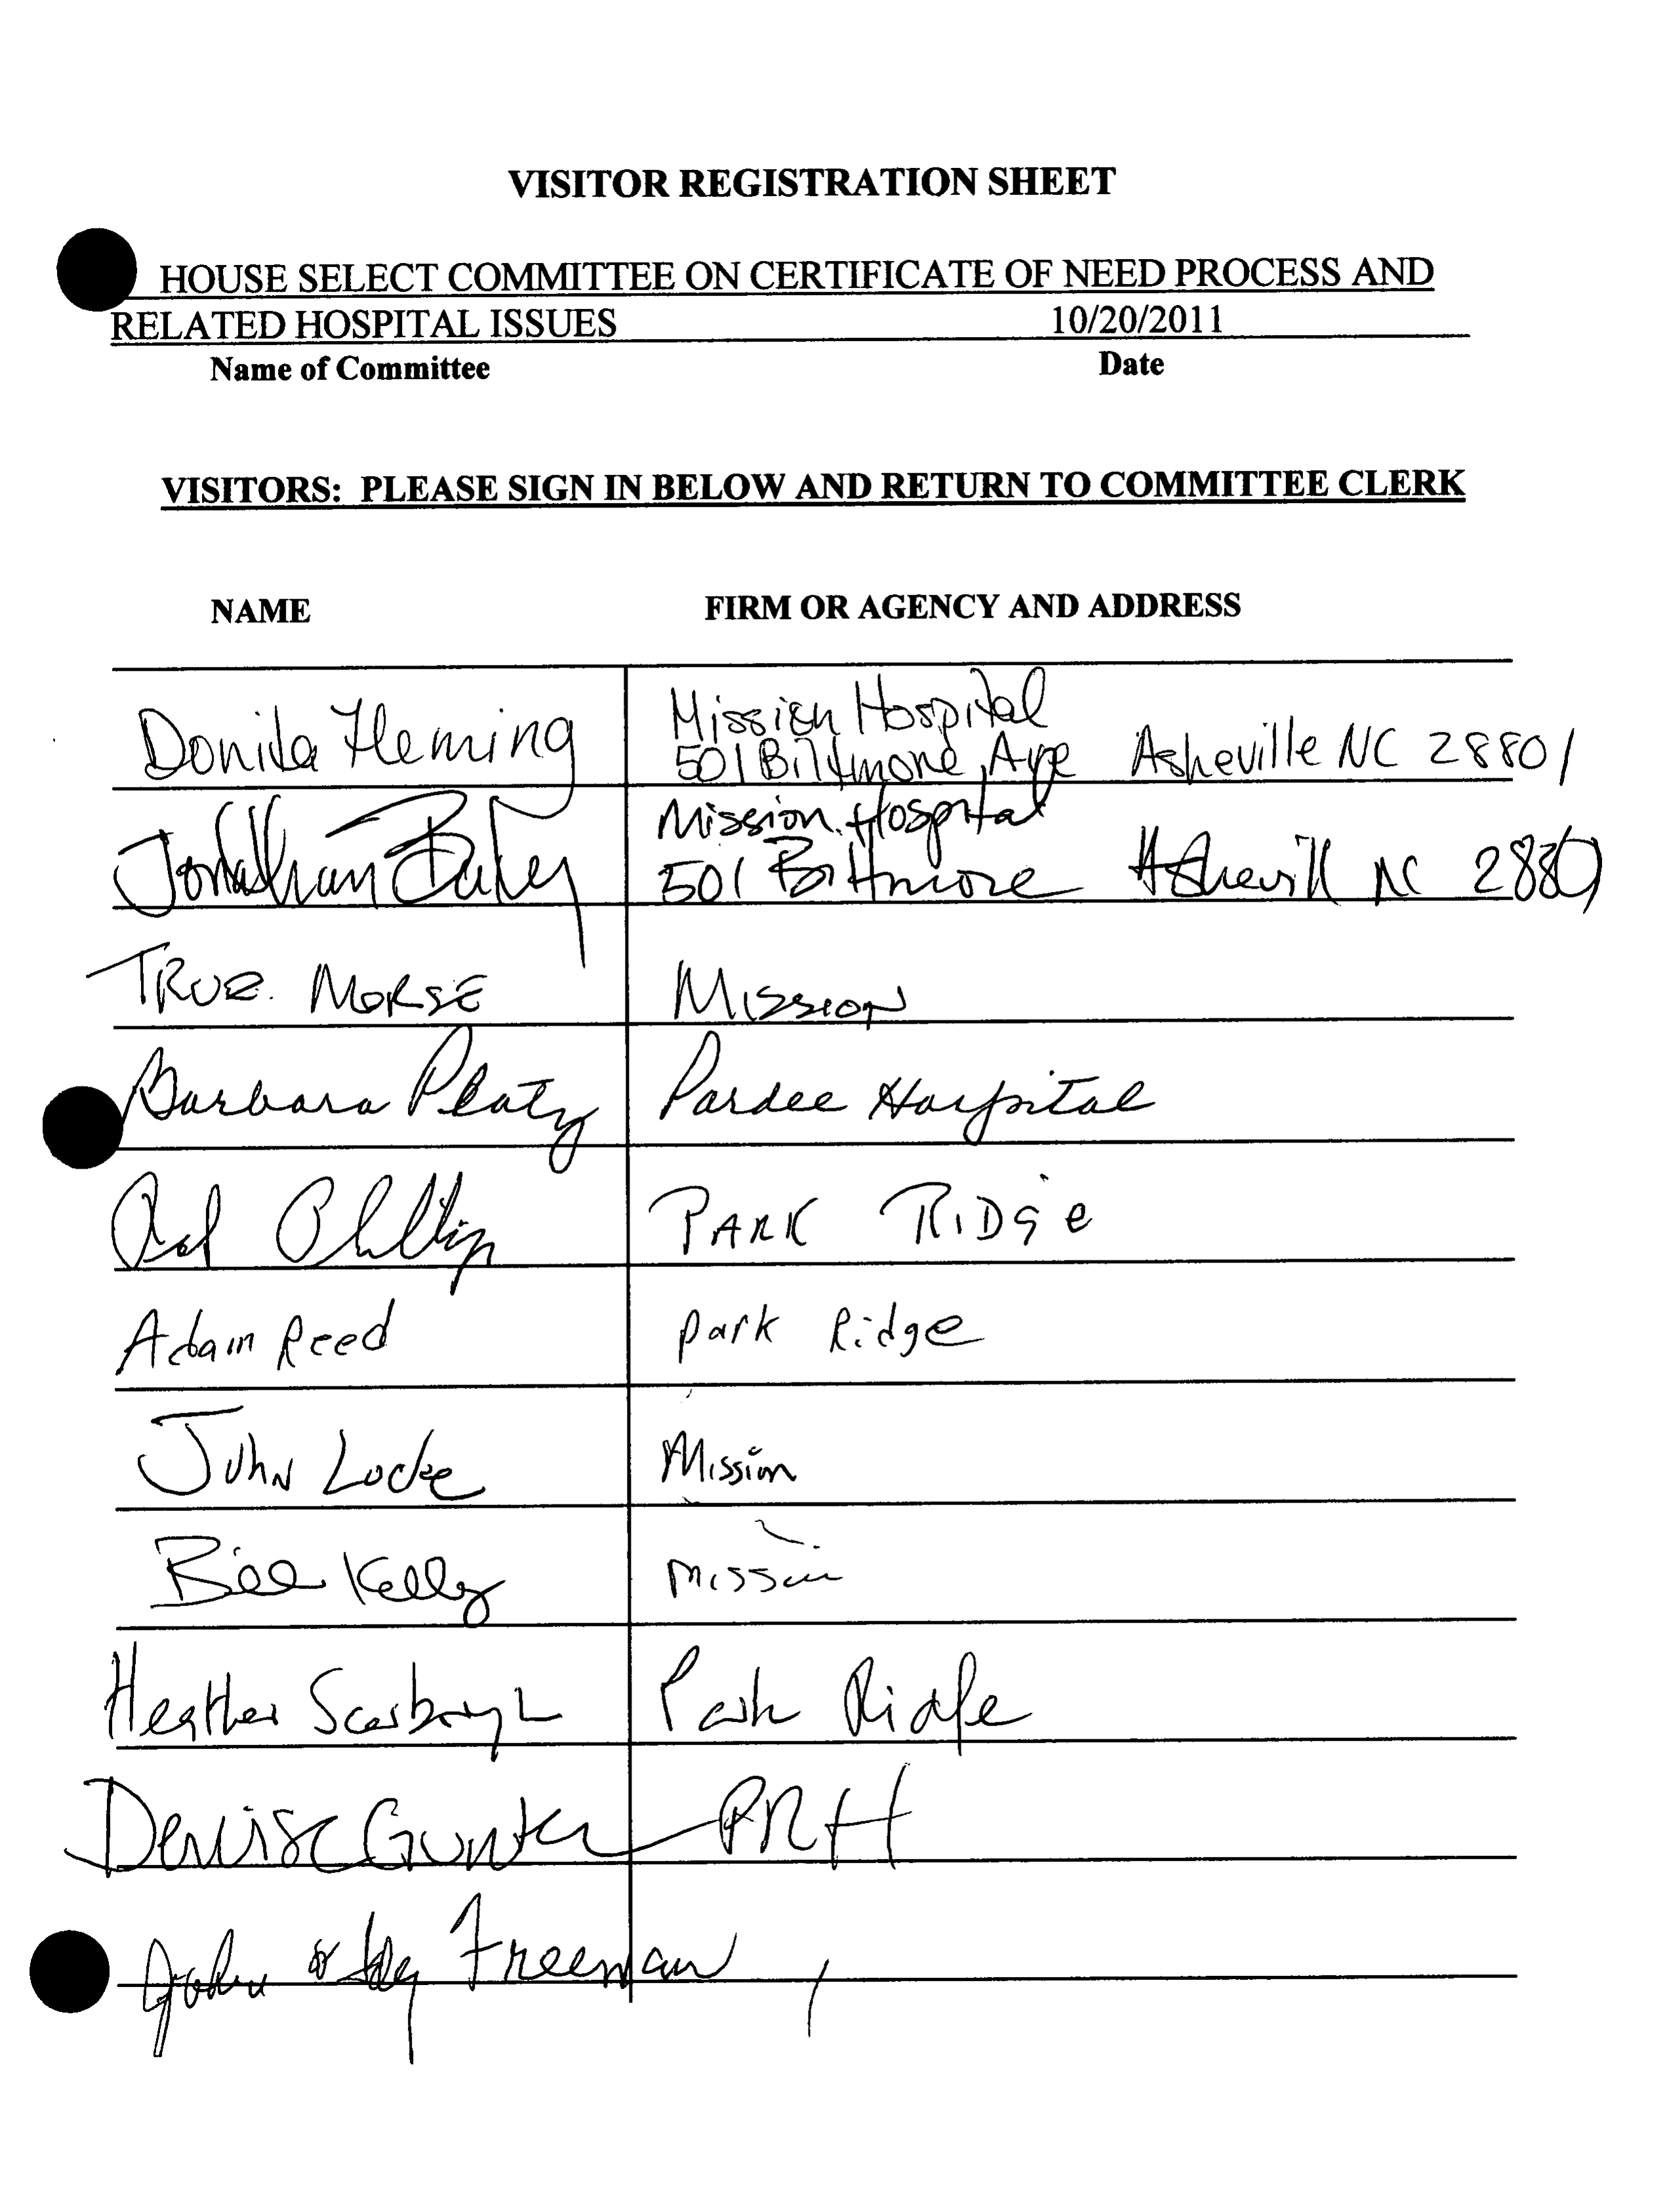 VISITOR REGISTRATION SHEET
HOUSE SELECT COMMITTEE ON CERTIFICATE OF NEED PROCESS AND
RELATED HOSPITAL ISSUES 10/20/2011
Name of Committee Date
VISITORS: PLEASE SIGN IN BELOW AND RETURN TO COMMITTEE CLERK
NAME FIRM OR AGENCY AND ADDRESS
Donita Fleming Mission Hospital
501 Biltmore Ave Asheville NC 28801
Jonathan Bailey Mission Hospital
501 Biltmore Ashevill NC 28801
TRUE MORSE MISSION
Barbara Platz Pardee Hospital
PARK RIDge
Adam Reed park Ridge
John Locke Mission
Bill Kelly Mission
Heather Scarbrough Park Ridge
Denise Gunter PRH
John & Freeman